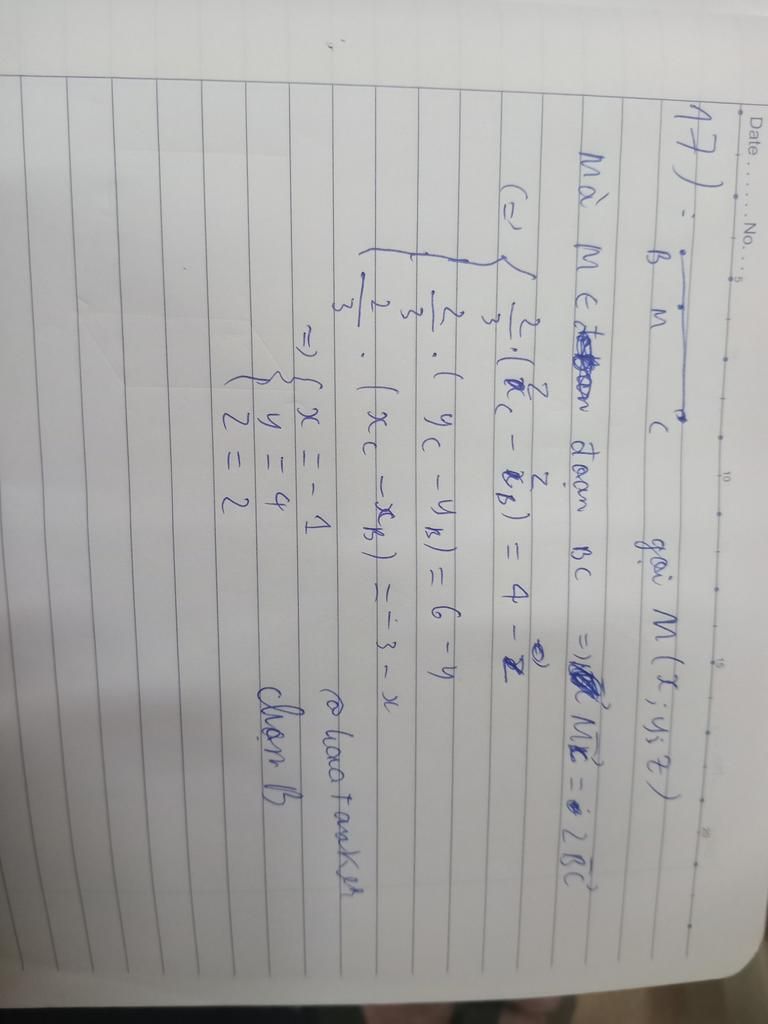 Date ....... No. ...
5 10 15 20
17) B M C gọi M(x; y; z)
Mà M ∈ đoạn BC => MC = 2BC
(=) { 2/3 . (z_C - z_B) = 4 - z
2/3 . (y_C - y_B) = 6 - y
2/3 . (x_C - x_B) = -3 - x
=> { x = -1
y = 4
z = 2
@hoatanker
chọn B